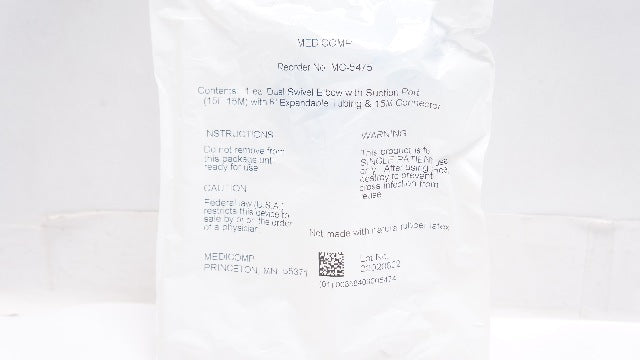 MEDICOMP
Reorder No. MC-5475
Contents: 1 ea. Dual Swivel Elbow with Suction Port
(15F-15M) with 6" Expandable Tubing & 15M Connector
INSTRUCTIONS
Do not remove from
this package until
ready for use.
CAUTION
Federal law (U.S.A.)
restricts this device to
sale by or on the order
of a physician.
WARNING
This product is for
SINGLE PATIENT use
only. After using once,
destroy to prevent
cross infection from
reuse.
Not made with natural rubber latex
MEDICOMP
PRINCETON, MN 55371
Lot No.
(01)